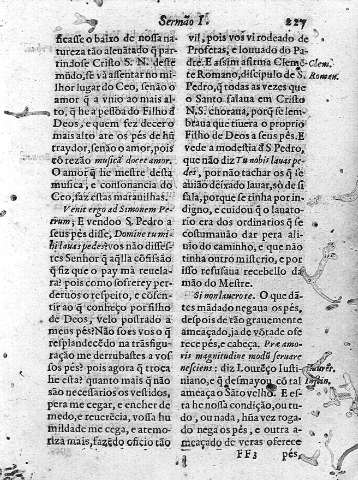 Sermão I. 227
ficasse o baixo de nossa na
tureza tão aleuãtado q̃ par
tindose Cristo S. N. deste
mũdo, se vá assentar no mi
lhor lugar do Ceo, senão o
amor q̃ a vnio ao mais al
to, q̃ he a pessoa do Filho d̃
Deos, e quem fez decer o
mais alto ate os pés de hũ
traydor, senão o amor, pois
cõ rezão musicã docet amor.
O amor q̃ he mestre desta
musica, e consonancia do
Ceo, faz estas marauilhas.
Venit ergo ad Simonem Pe
trum; E vendoo S. Pedro a
seus pés disse, Domine tu mi
hi lauas pedes? vos não disses
tes Senhor q̃ aq̃lla cõfissão
q̃ fiz que o pay má reuela
ra? pois como sofrerey per
deruos o respeito, e cõsen
tir ao q̃ conheço por filho
de Deos, velo postrado a
meus pés? Não soes vos o q̃
resplandecẽdo na trãsfigu
ração me derrubastes a vos
sos pés? pois agora q̃ troca
he esta? quanto mais q̃ não
são necessarios os vestidos,
pera me cegar, e encher de
medo, e reuerẽcia, vossa hu
mildade me cega, e atemo
riza mais, fazẽdo oficio tão
vil, pois vos vi rodeado de
Profetas, e louuado do Pa
dre. E assim afirma Clemẽ
te Romano, discipulo de S.
Pedro, q̃ todas as vezes que
o Santo falaua em Cristo
N. S. choraua, porq̃ se lem
braua que tiuera o proprio
Filho de Deos a seus pés. E
vede a modestia d̃ S Pedro,
que não diz Tu nobis lauas pe
des, por não tachar os q̃ se
auião deixado lauar, só de si
fala, porque se tinha por in
digno, e cuidou q̃ o lauato
rio era dos ordinarios q̃ se
costumauão dar pera ali
uio do caminho, e que não
tinha outro misterio, e por
isso refusaua recebello da
mão do Mestre.
Si non lauero te. O que dã
tes mãdado negaua os pés,
despois de tão grauemente
ameaçado, ja de võtade ofe
rece pés, e cabeça. Præ amo
ris magnitudine modũ seruare
nesciens: diz Lourẽço Iusti
niano, e q̃ desmayou cõ tal
ameaça o Sãto velho. E es
ta he nossa condição, ou tu
do, ou nada, hũa vez roga
do nega os pés, e outra a-
meaçado de veras oferece
FF3 pés,
Clem.
Roman.
Laurẽt.
Iustin.